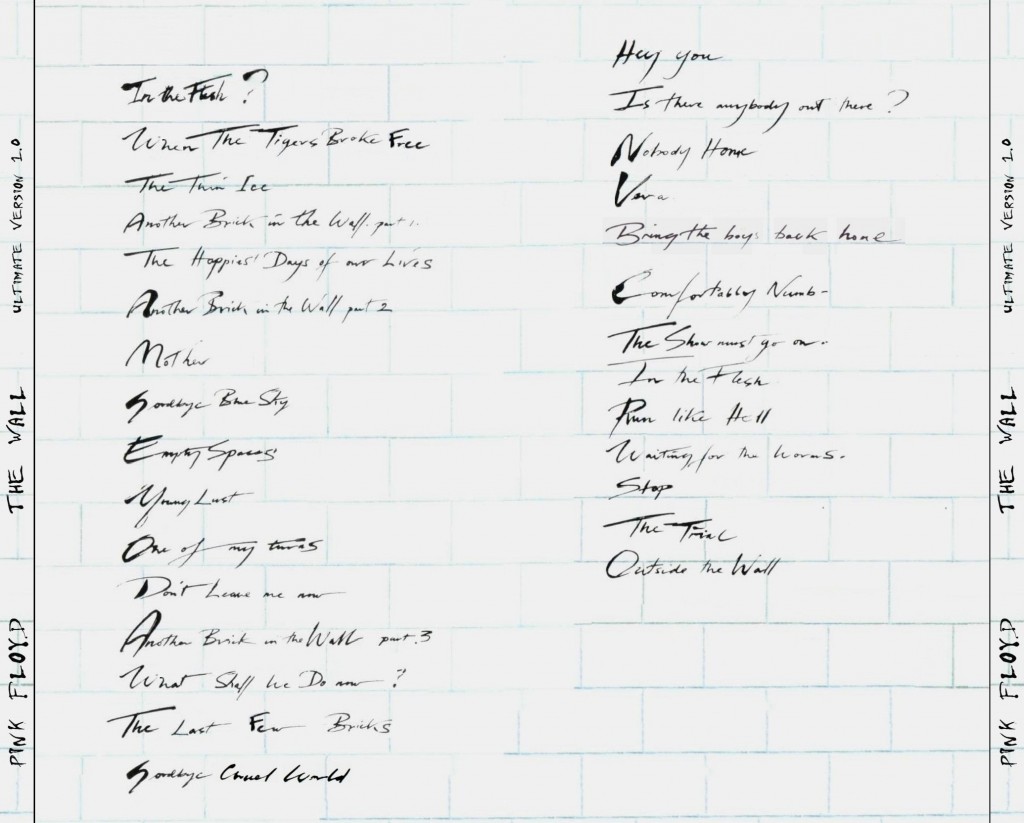 In the Flesh ?
When The Tigers Broke Free
The Thin Ice
Another Brick in the Wall part 1.
The Happiest Days of our Lives
Another Brick in the Wall part 2
Mother
Goodbye Blue Sky
Empty Spaces
Young Lust
One of my turns
Don't Leave me now
Another Brick in the Wall part.3
What Shall We Do now ?
The Last Few Bricks
Goodbye Cruel World
Hey you
Is there anybody out there ?
Nobody Home
Vera
Bring the boys back home
Comfortably Numb-
The Show must go on-
In the Flesh
Run like Hell
Waiting for the worms-
Stop
The Trial
Outside the Wall
PINK FLOYD THE WALL ULTIMATE VERSION 2.0
PINK FLOYD THE WALL ULTIMATE VERSION 2.0